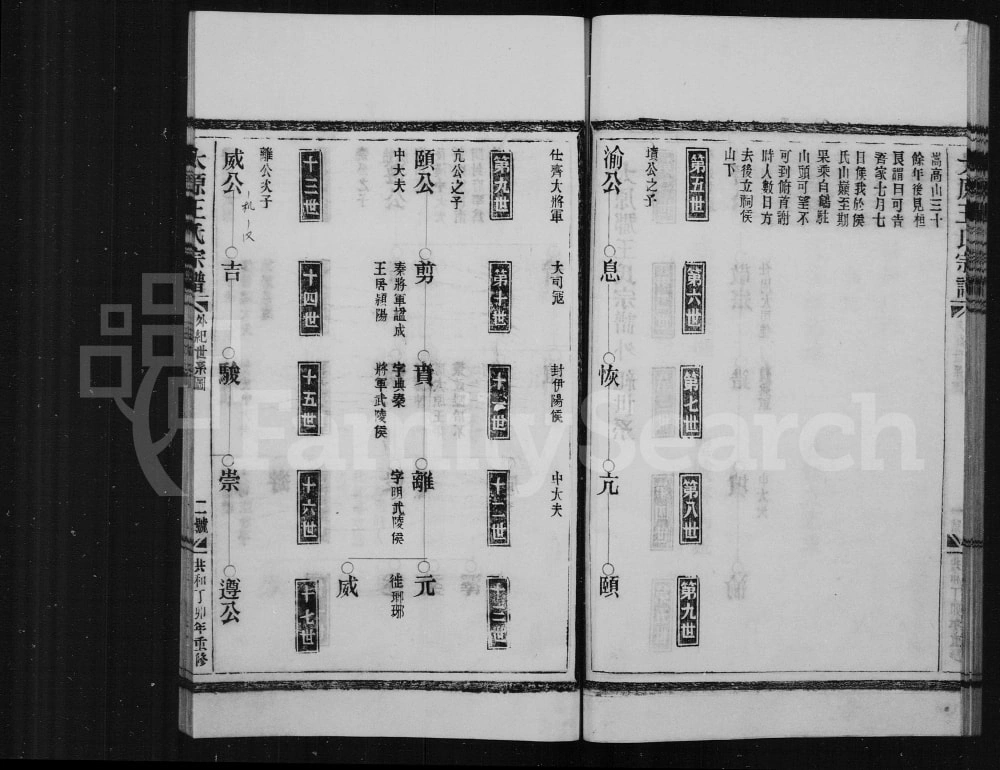 嵩高山三十
餘年後見柏
良謂曰可吿
吾家七月七
日候我於緱
氏山巔至期
果乘白鶴駐
山頭可望不
可到俯首謝
時人數日方
去後立祠緱
山下
第五世
第六世
第七世
第八世
第九世
瑱公之子
渝公
息
恢
亢
頤
仕齊大將軍
大司冠
封伊陽侯
中大夫
第九世
第十世
十一世
十二世
十三世
亢公之子
頤公
剪
賁
離
元
中大夫
秦將軍諡成
王居潁陽
字典秦
將軍武陵侯
字明武陵侯
徙瑯琊
威
十三世
十四世
十五世
十六世
十七世
離公次子
威公
吉
駿
崇
遵公
太原王氏宗譜
外紀世系圖
二號
共和丁卯年重修
FamilySearch